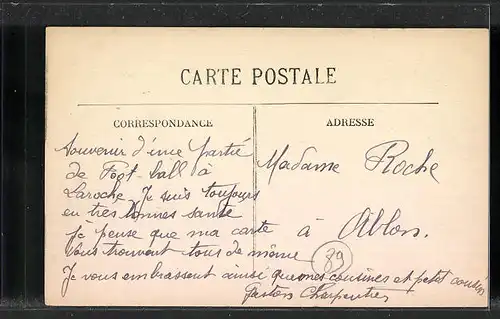 CARTE POSTALE
CORRESPONDANCE
Souvenir d'une partie
de Foot-ball à
Laroche, Je suis toujours
en très bonnes santé
je pense que ma carte
vous trouvant tous de même
Je vous embrassent ainsi que mes cousines et petit cousin
Gaston Charpentier
ADRESSE
Madame Roche
à Ablon.
89